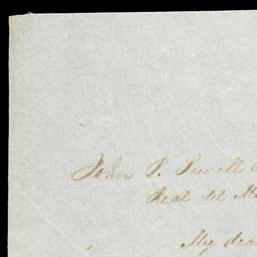 John P. Sewell
Real del M
My dear